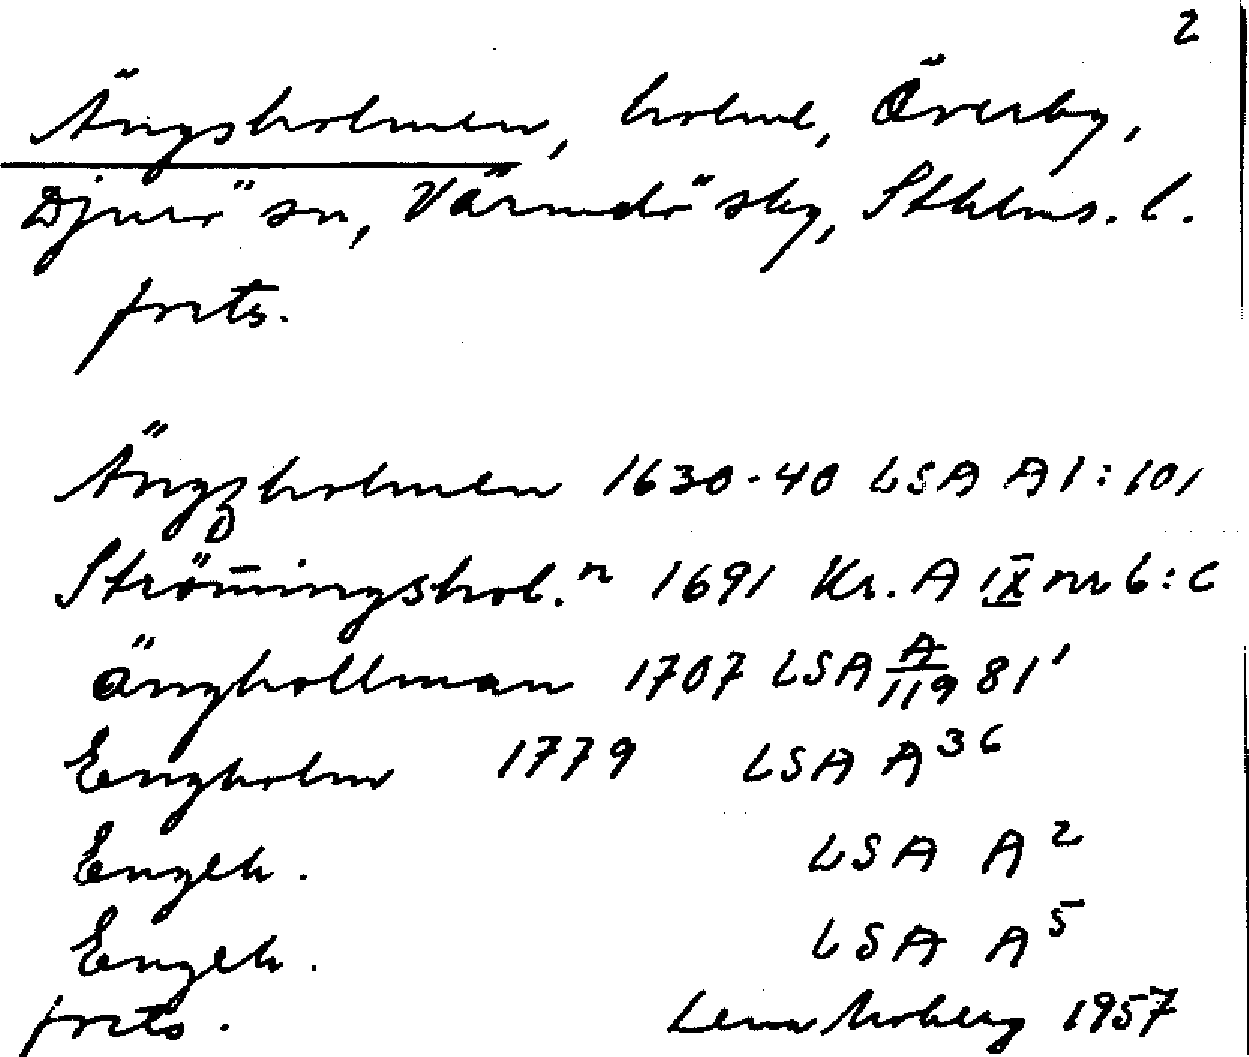 2
Ängsholmen, holme, Överby,
Djurö sn, Värmdö sky, Sthlms. l.
forts.
Ängzholmen 1630-40 LSA A1:101
Ström̄ingshol.n 1691 Kr. A IX nr 6:C
änghollman 1707 LSA A/119 81'
Engholm 1779 LSA A36
Engeh. LSA A2
Engeh. LSA A5
forts. Lena Moberg 1957